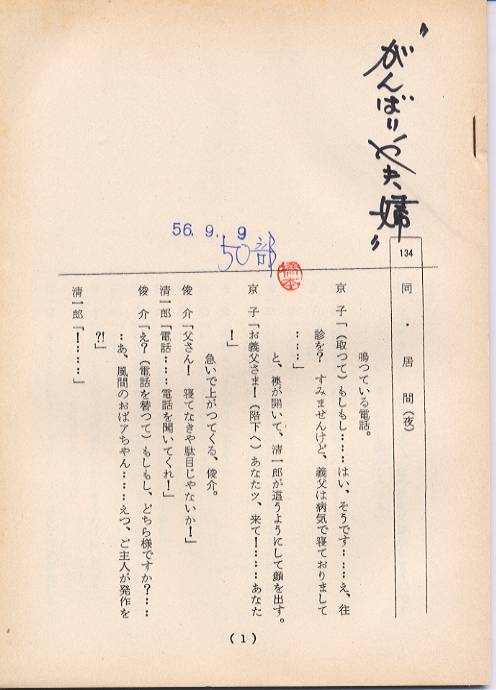 〝がんばりや夫婦〟
56. 9. 9
50部
134
同・居間(夜)
鳴つている電話。
京子「(取つて)もしもし……はい、そうです……え、往
診を? すみませんけど、義父は病気で寝ておりまして
……」
と、襖が開いて、清一郎が這うようにして顔を出す。
京子「お義父さま!(階下へ)あなたツ、来て!……あなた
!」
急いで上がつてくる、俊介。
俊介「父さん! 寝てなきや駄目じゃないか!」
清一郎「電話……電話を聞いてくれ!」
俊介「え?(電話を替つて)もしもし、どちら様ですか?……
…あ、風間のおばアちゃん……えつ、ご主人が発作を
?!」
清一郎「!……」
(1)